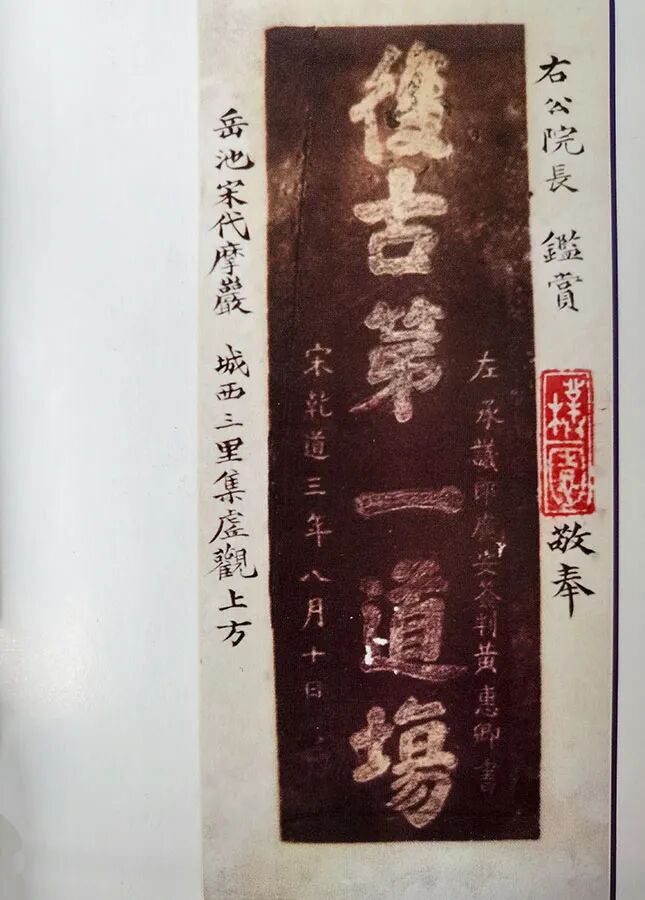 右公院長 鑑賞
敬奉
左承議郎廣安簽判黃惠卿書
後古第一道場
宋乾道三年八月十日
岳池宋代摩巖 城西三里集虛觀上方